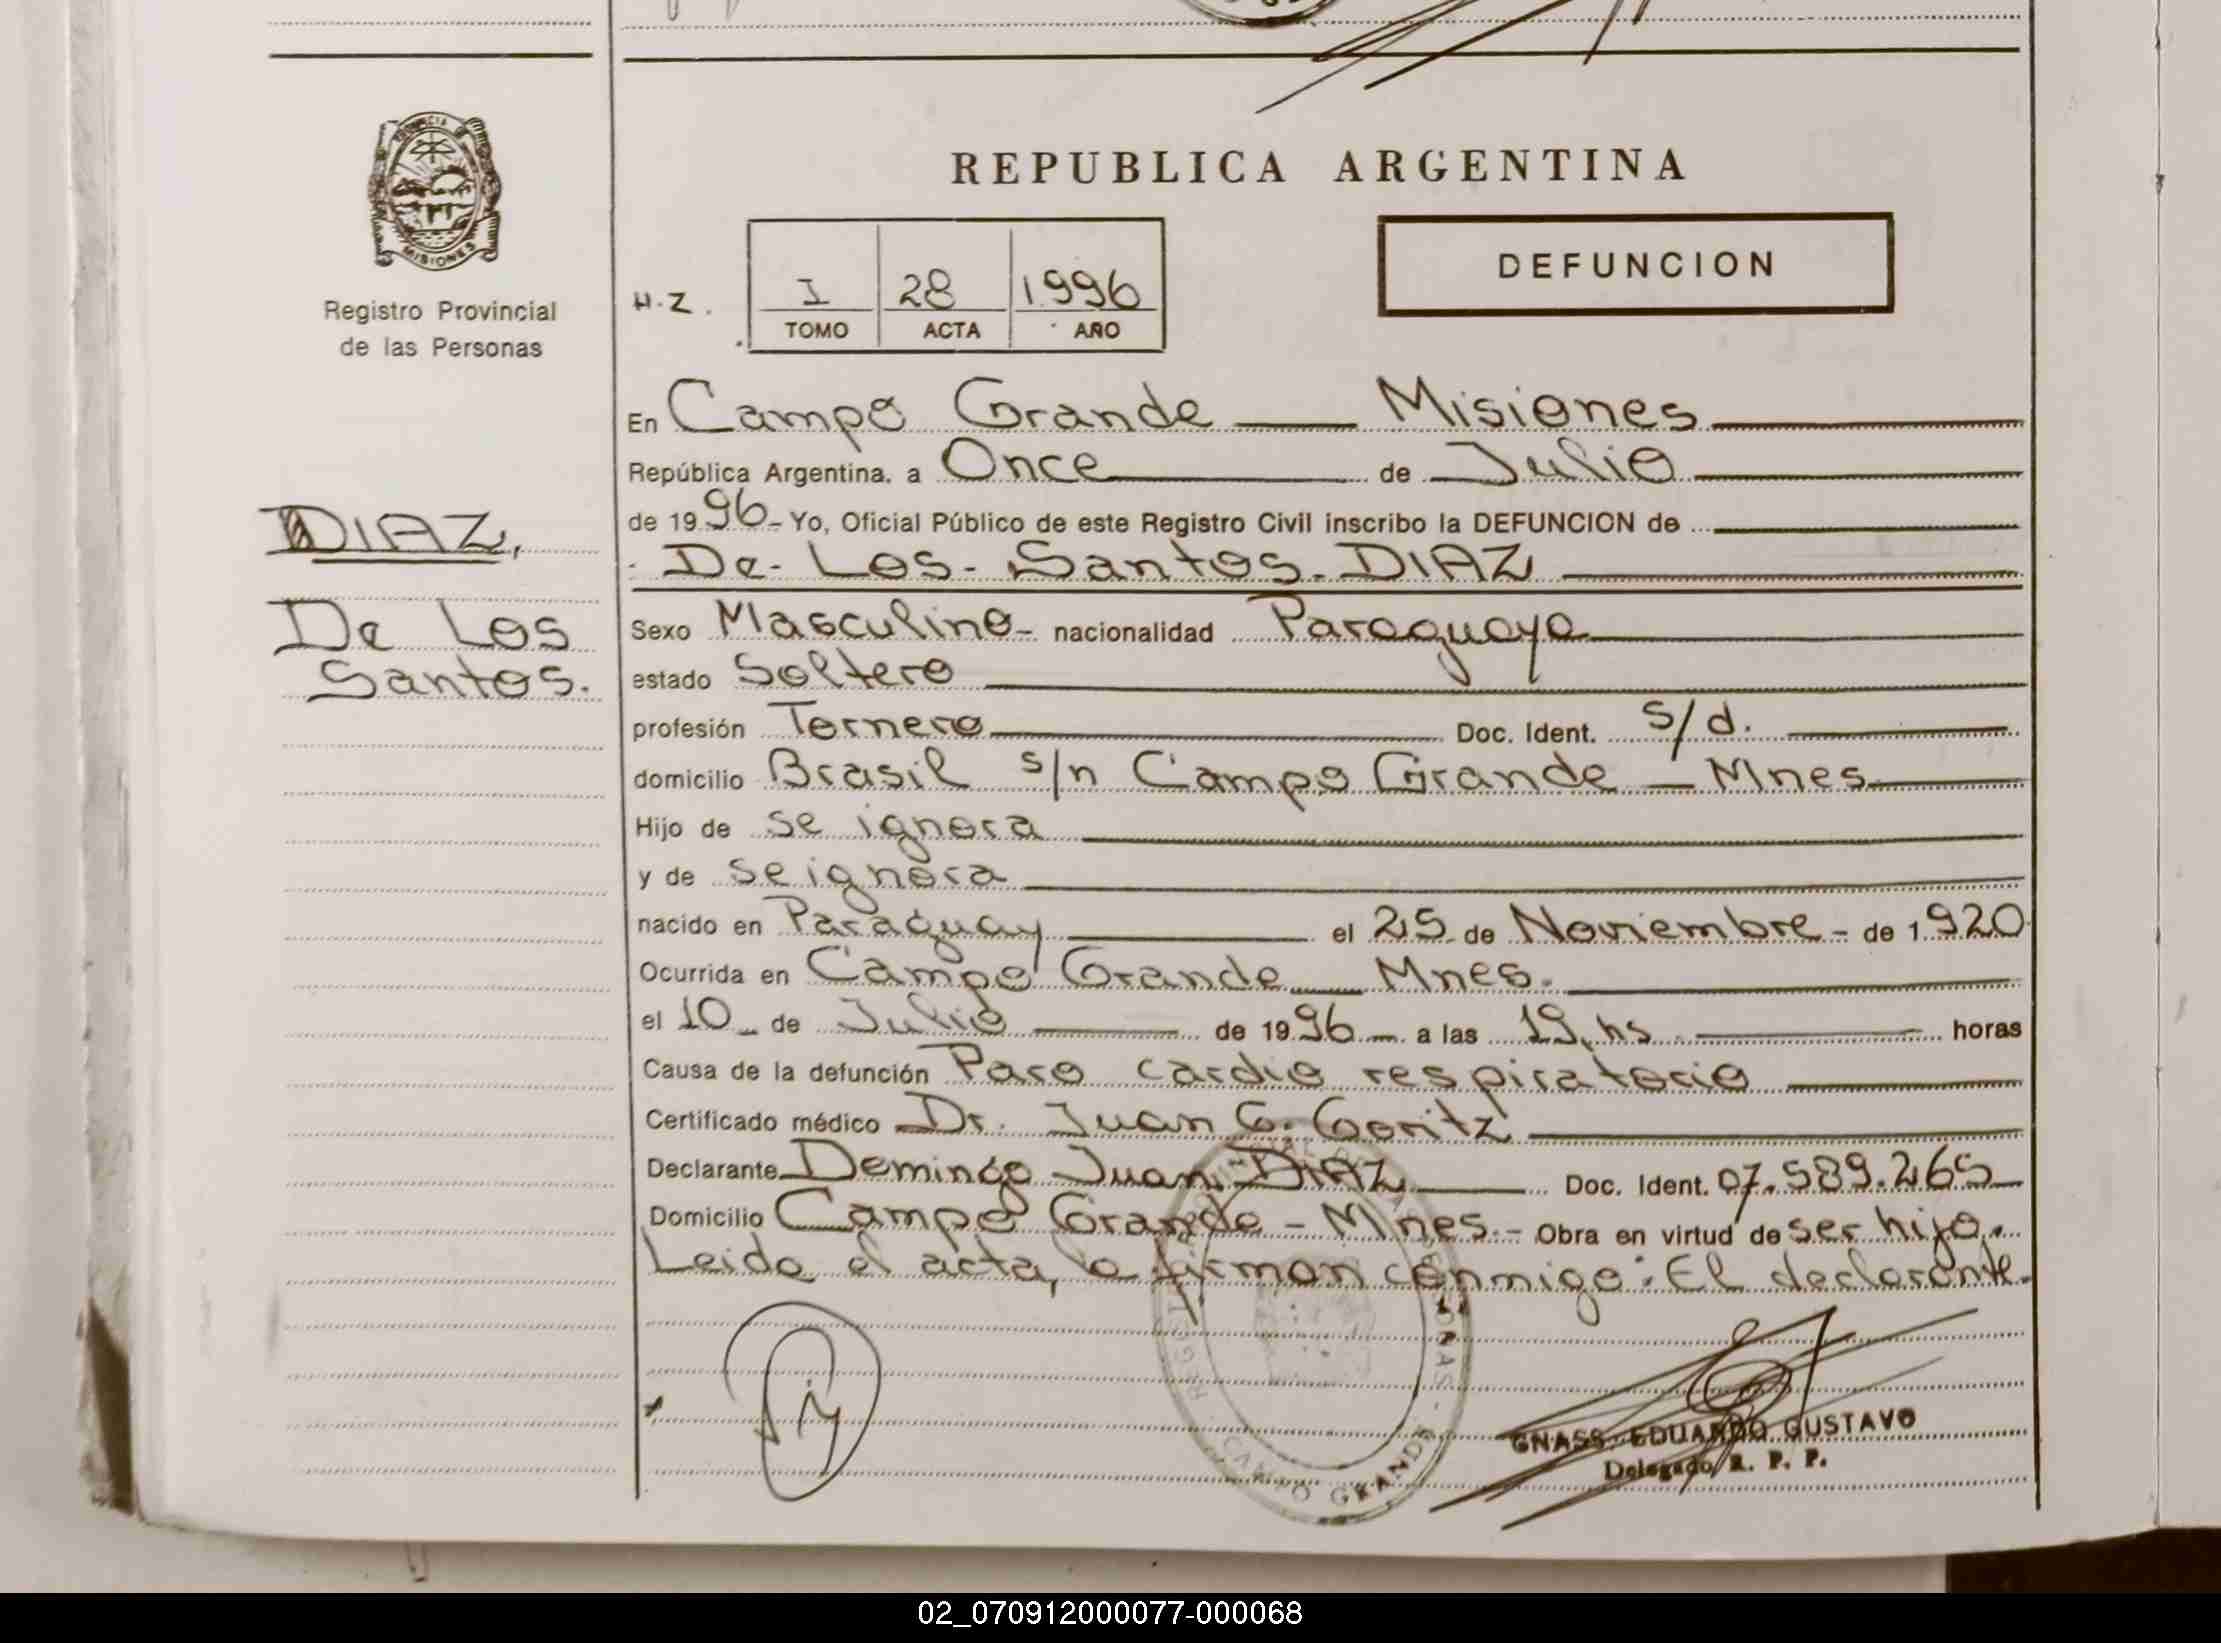 PROVINCIA DE
MISIONES
Registro Provincial
de las Personas
DIAZ,
De Los
Santos.
REPUBLICA ARGENTINA
H.Z. I 28 1996
TOMO ACTA AÑO
DEFUNCION
En Campo Grande — Misiones
República Argentina, a Once de Julio
de 1996- Yo, Oficial Público de este Registro Civil inscribo la DEFUNCION de
De Los Santos DIAZ
Sexo Masculino- nacionalidad Paraguaya
estado Soltero
profesión Tornero Doc. Ident. s/d.
domicilio Brasil s/n Campo Grande — Mnes
Hijo de se ignora
y de se ignora
nacido en Paraguay el 25 de Noviembre - de 1920
Ocurrida en Campo Grande — Mnes.
el 10 - de Julio de 1996 - a las 19 hs horas
Causa de la defunción Paro cardio respiratorio
Certificado médico Dr. Juan G. Goritz
Declarante Domingo Juan DIAZ Doc. Ident. 07.589.265
Domicilio Campo Grande - Mnes.- Obra en virtud de ser hijo.
Leida el acta, la firman conmigo: El declarante.
REGISTRO PROVINCIAL DE LAS PERSONAS - CAMPO GRANDE
GNASS, EDUARDO GUSTAVO
Delegado R. P. P.
02_070912000077-000068